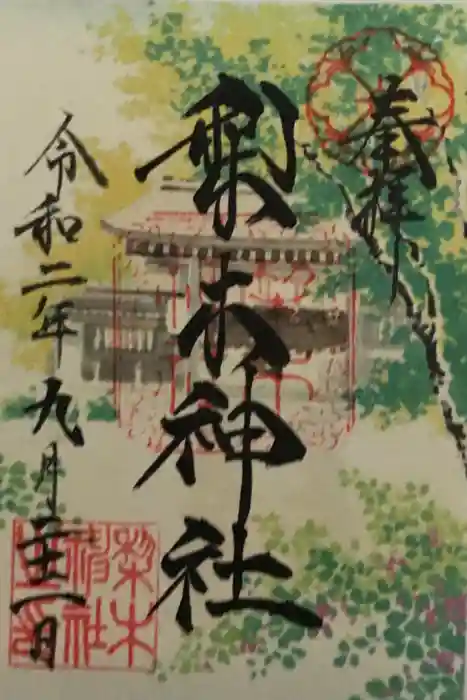 奉拝
梨木神社
令和二年九月二十一日
梨木
神社